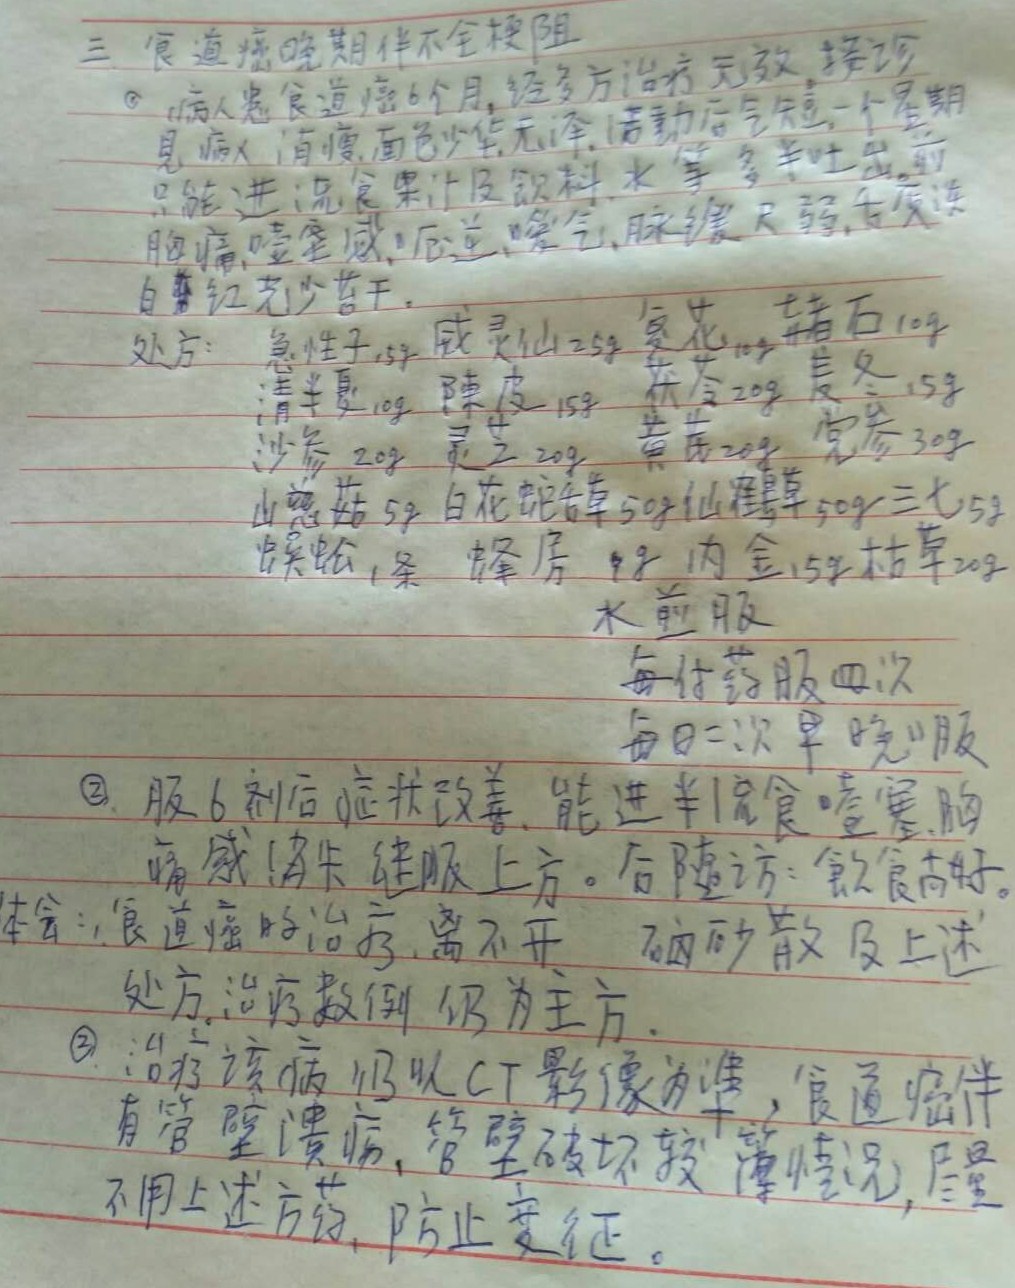 三 食道癌晚期伴不全梗阻
① 病人患食道癌6个月,经多方治疗无效,接诊
见病人消瘦,面色少华无泽,活動后气短,一个星期
只能进流食果汁及飲料,水等多半吐出。前
胸痛,噎塞感,呃逆、嗳气,脉缓尺弱,舌质淡
白 红壳少苔干。
处方: 急性子15g 威灵仙25g 复花10g 赭石10g
清半夏10g 陳皮15g 茯苓20g 麦冬15g
沙参20g 灵芝20g 黄芪20g 党参30g
山慈菇5g 白花蛇舌草50g 仙鶴草50g 三七5g
蜈蚣1条 蜂房9g 内金15g 枯草20g
水煎服
每付药服四次
每日二次早晚服
② 服6剂后症状改善,能进半流食,噎塞、胸
痛感消失 继服上方。后隨访:飲食尚好。
体会:食道癌的治疗,离不开 硇砂散及上述
处方,治疗数例仍为主方.
② 治疗该病仍以CT影像为準,食道癌伴
有管壁溃疡、管壁破坏较薄情况,尽量
不用上述方药,防止变征。